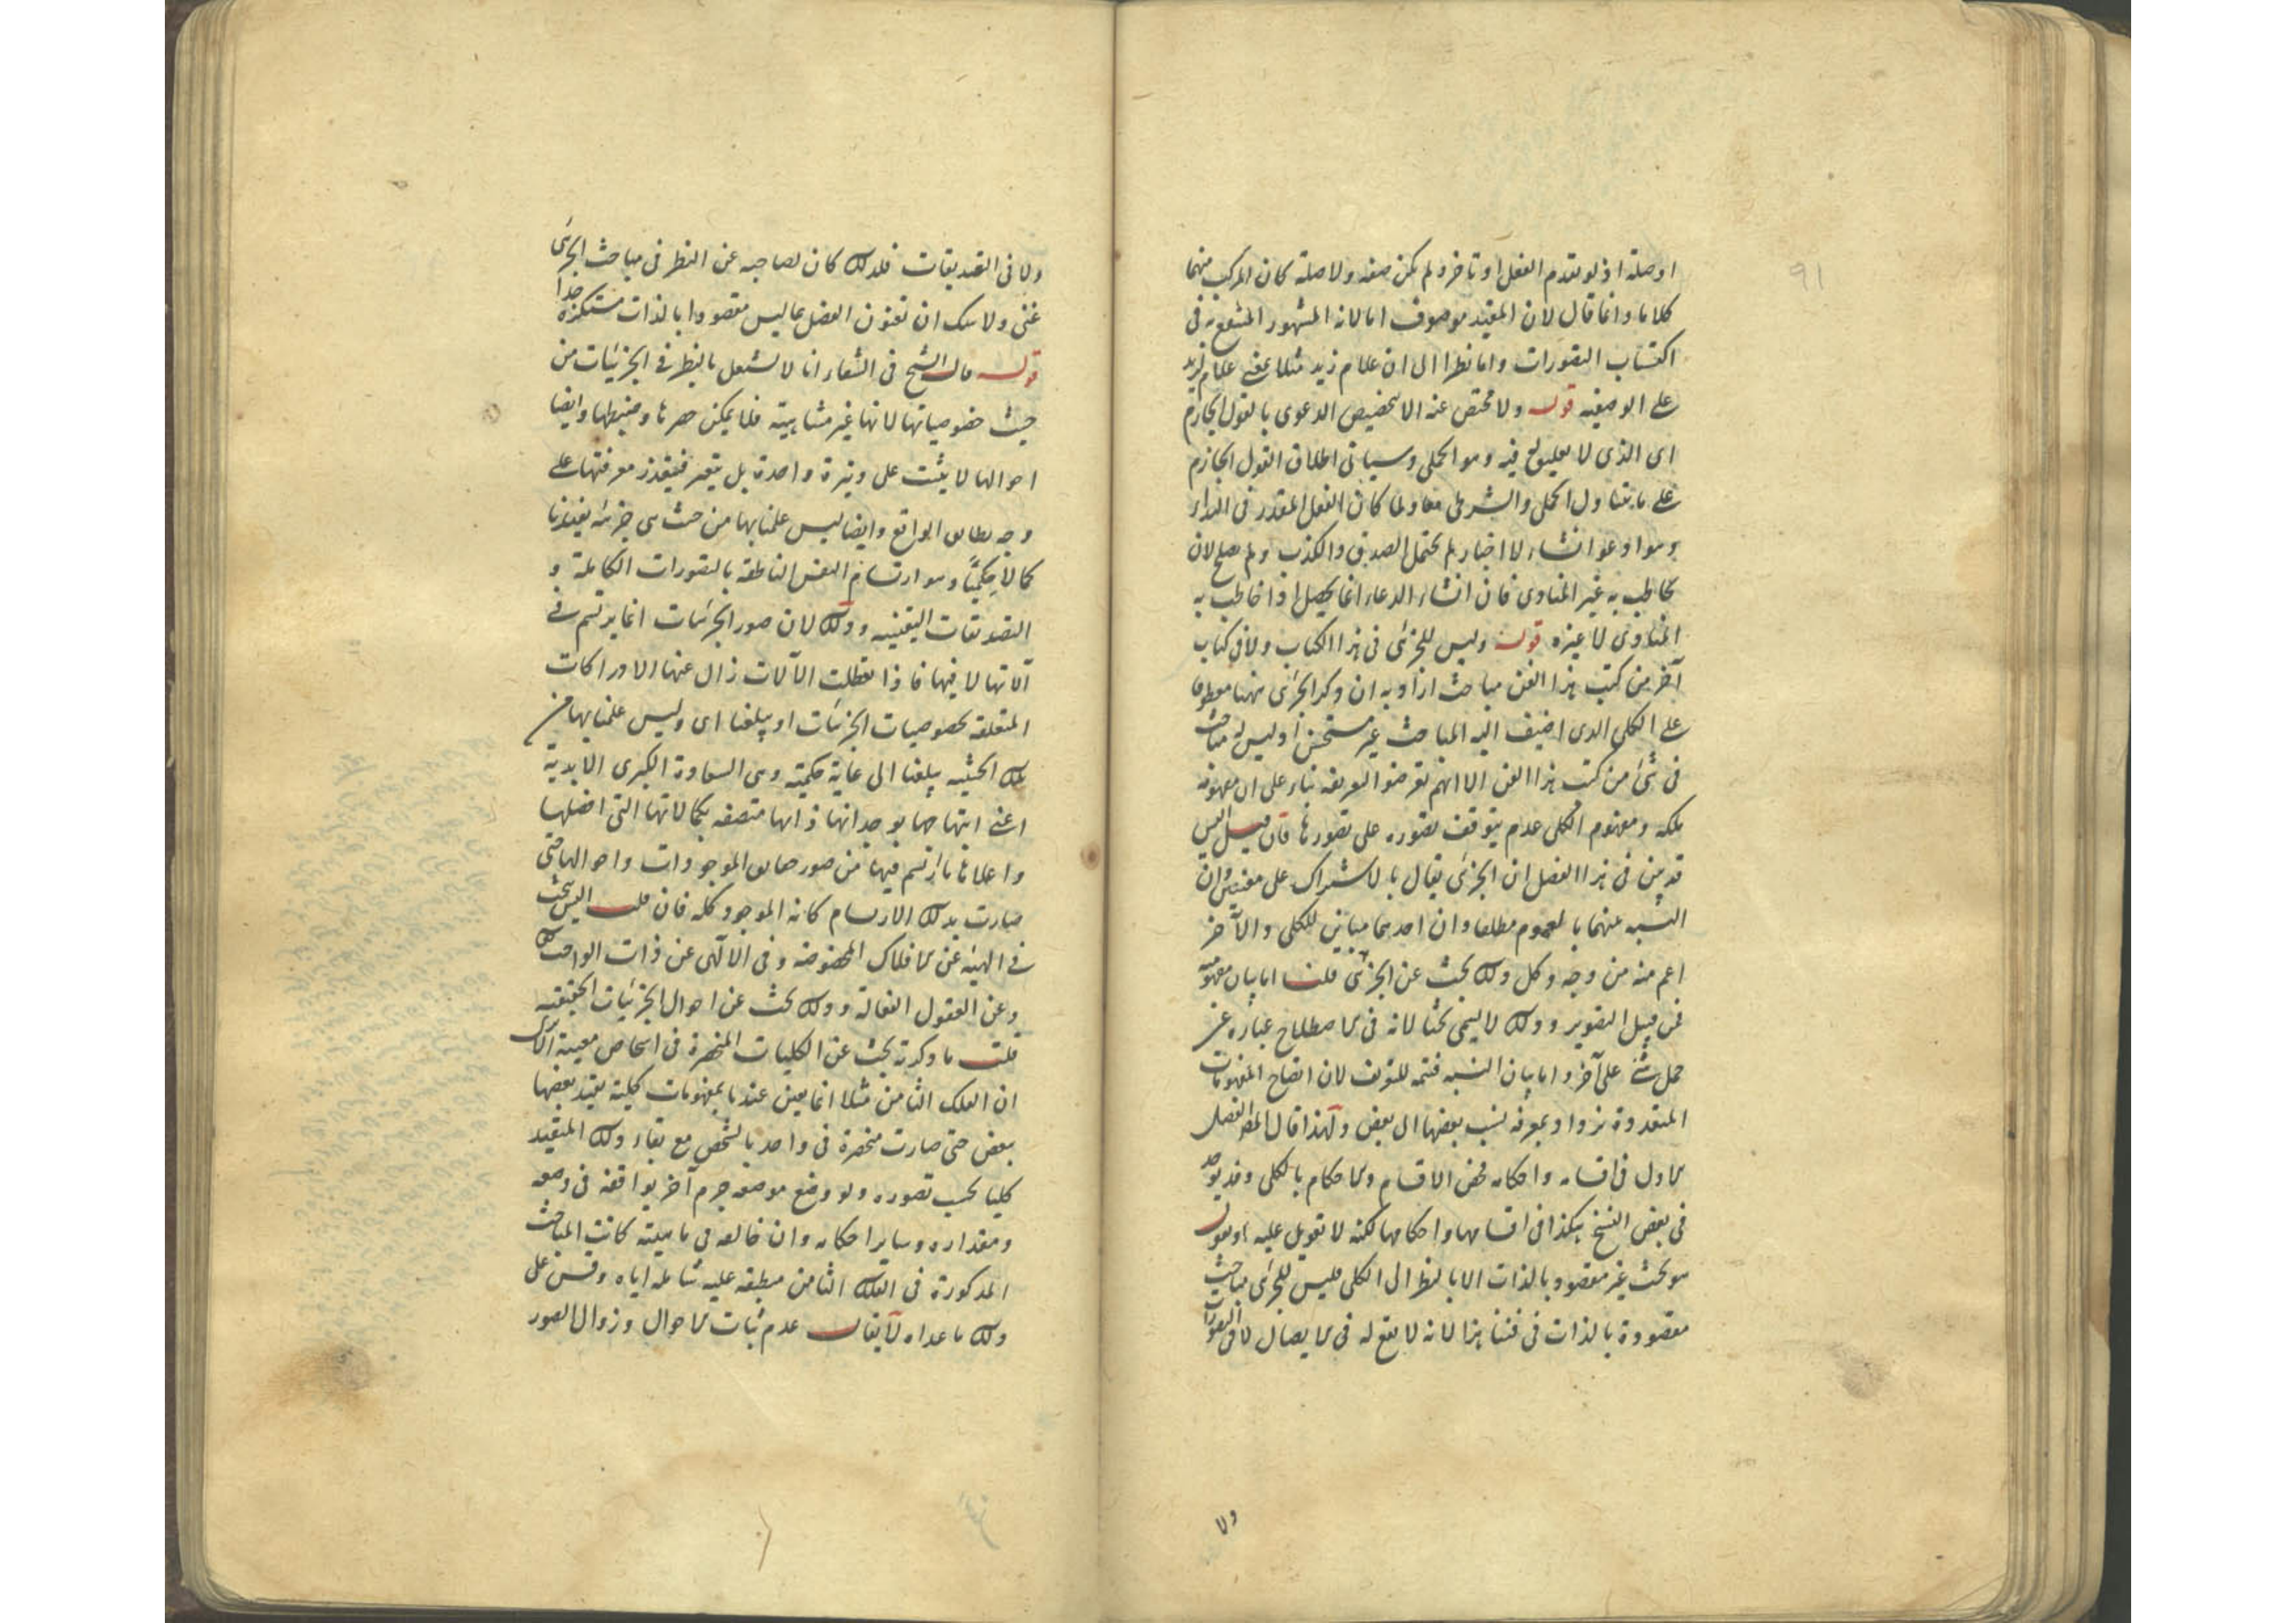 91
او صلة اذ لو تقدم الفعل او تاخر ولم يكن صفة ولا صلة كان المركب منهما
كلاما وانما قال لان المقيد موصوف اما لانه المشهور المنتفع به فى
اكتساب التصورات واما نظرا الى ان غلام زيد مثلا بمعنى غلام لزيد
على الوصفية قوله ولا مخلص عنه الا بتخصيص الدعوى بالقول الجازم
اى الذى لا تعليق فيه وهو الحملى وسياتى اطلاق القول الجازم
على ما يتناول الحملى والشرطى معا ولما كان الفعل المقدر فى النداء
وهو ادعو انشاء لا اخبار لم يحتمل الصدق والكذب ولم يصلح لان
يخاطب به غير المنادى فان انشاء الدعاء انما يحصل اذا خاطب به
المنادى لا غيره قوله وليس للجزئى فى هذا الكتاب ولا فى كتاب
آخر من كتب هذا الفن مباحث اراد به ان ذكر الجزئى ههنا معطوفا
على الكلى الذى اضيف اليه المباحث غير مستحسن اذ ليس له مباحث
فى شئ من كتب هذا الفن الا انهم تعرضوا لتعريفه بناء على ان مفهومه
ملكة ومفهوم الكلى عدم يتوقف تصوره على تصورها فان قيل اليس
قد بين فى هذا الفصل ان الجزئى يقال بالاشتراك على معنيين وان
النسبة بينهما بالعموم مطلقا وان احدهما مباين للكلى والآخر
اعم منه من وجه وكل ذلك بحث عن الجزئى قلنا اما بيان مفهوميه
فمن قبيل التصوير وذلك لا يسمى بحثا لانه فى الاصطلاح عبارة عن
حمل شئ على آخر واما بيان النسبة فتتمة للتعريف لان اتضاح المفهومات
المتعددة يزداد بمعرفة نسب بعضها الى بعض ولهذا قال المص الفصل
الاول فى اقسامه واحكامه فخص الاقسام والاحكام بالكلى وقد يوجد
فى بعض النسخ هكذا فى اقسامها واحكامها لكنه لا تعويل عليه او نقول
هو بحث غير مقصود بالذات الا بالنظر الى الكلى فليس للجزئى مباحث
مقصودة بالذات فى فننا هذا لانه لا نفع له فى الايصال لا فى التصورات
ولا
ولا فى التصديقات فلذلك كان لصاحبه عن النظر فى مباحث الجزئى
غنى ولا شك ان تعنون الفصل بما ليس مقصودا بالذات مستكره جدا
قوله قال الشيخ فى الشفاء انا لا نشتغل بالنظر فى الجزئيات من
حيث خصوصياتها لانها غير متناهية فلا يمكن حصرها وضبطها وايضا
احوالها لا يثبت على وتيرة واحدة بل يتغير فيتعذر معرفتها على
وجه يطابق الواقع وايضا ليس علمنا بها من حيث هى جزئية يفيدنا
كمالا حكميا وهو ارتسام النفس الناطقة بالتصورات الكاملة و
التصديقات اليقينية وذلك لان صور الجزئيات انما يرتسم فى
آلاتها لا فيها فاذا تعطلت الآلات زال عنها الادراكات
المتعلقة بخصوصيات الجزئيات او يبلغنا اى وليس علمنا بها من
تلك الحيثية يبلغنا الى غاية حكمية وهى السعادة الكبرى الابدية
اعنى ابتهاجها بوجدانها ذاتها متصفة بكمالاتها التى افضلها
واعلاها ما ارتسم فيها من صور حقايق الموجودات واحوالها حتى
صارت بذلك الارتسام كانه الموجود كله فان قلت اليس يبحث
فى الهيئة عن الافلاك المخصوصة وفى الالهى عن ذات الواجب
وعن العقول الفعالة وذلك بحث عن احوال الجزئيات الحقيقية
قلت ما ذكرته بحث عن الكليات المنحصرة فى اشخاص معينة
ان الفلك الثامن مثلا انما يعين عندنا بمفهومات كلية يقيد بعضها
ببعض حتى صارت منحصرة فى واحد بالشخص مع بقاء ذلك المتقيد
كليا بحسب تصوره ولو وضع موضعه جرم آخر يوافقه فى وضعه
ومقداره وساير احكامه وان خالفه فى ماهيته كانت المباحث
المذكورة فى الفلك الثامن منطبقة عليه شاملة اياه وقس على
ذلك ما عداه لا يقال عدم ثبات الاحوال وزوال الصور